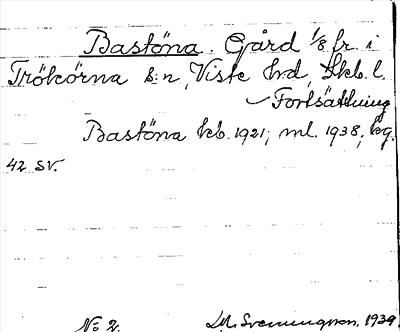 Bastöna. Gård 1/8 fr. i
Trökörna s:n, Viste hrd, Skb. l.
Fortsättning
Bastöna kb. 1921; ml. 1938, kg.
42 sv.
No 2. Sveningsson. 1939